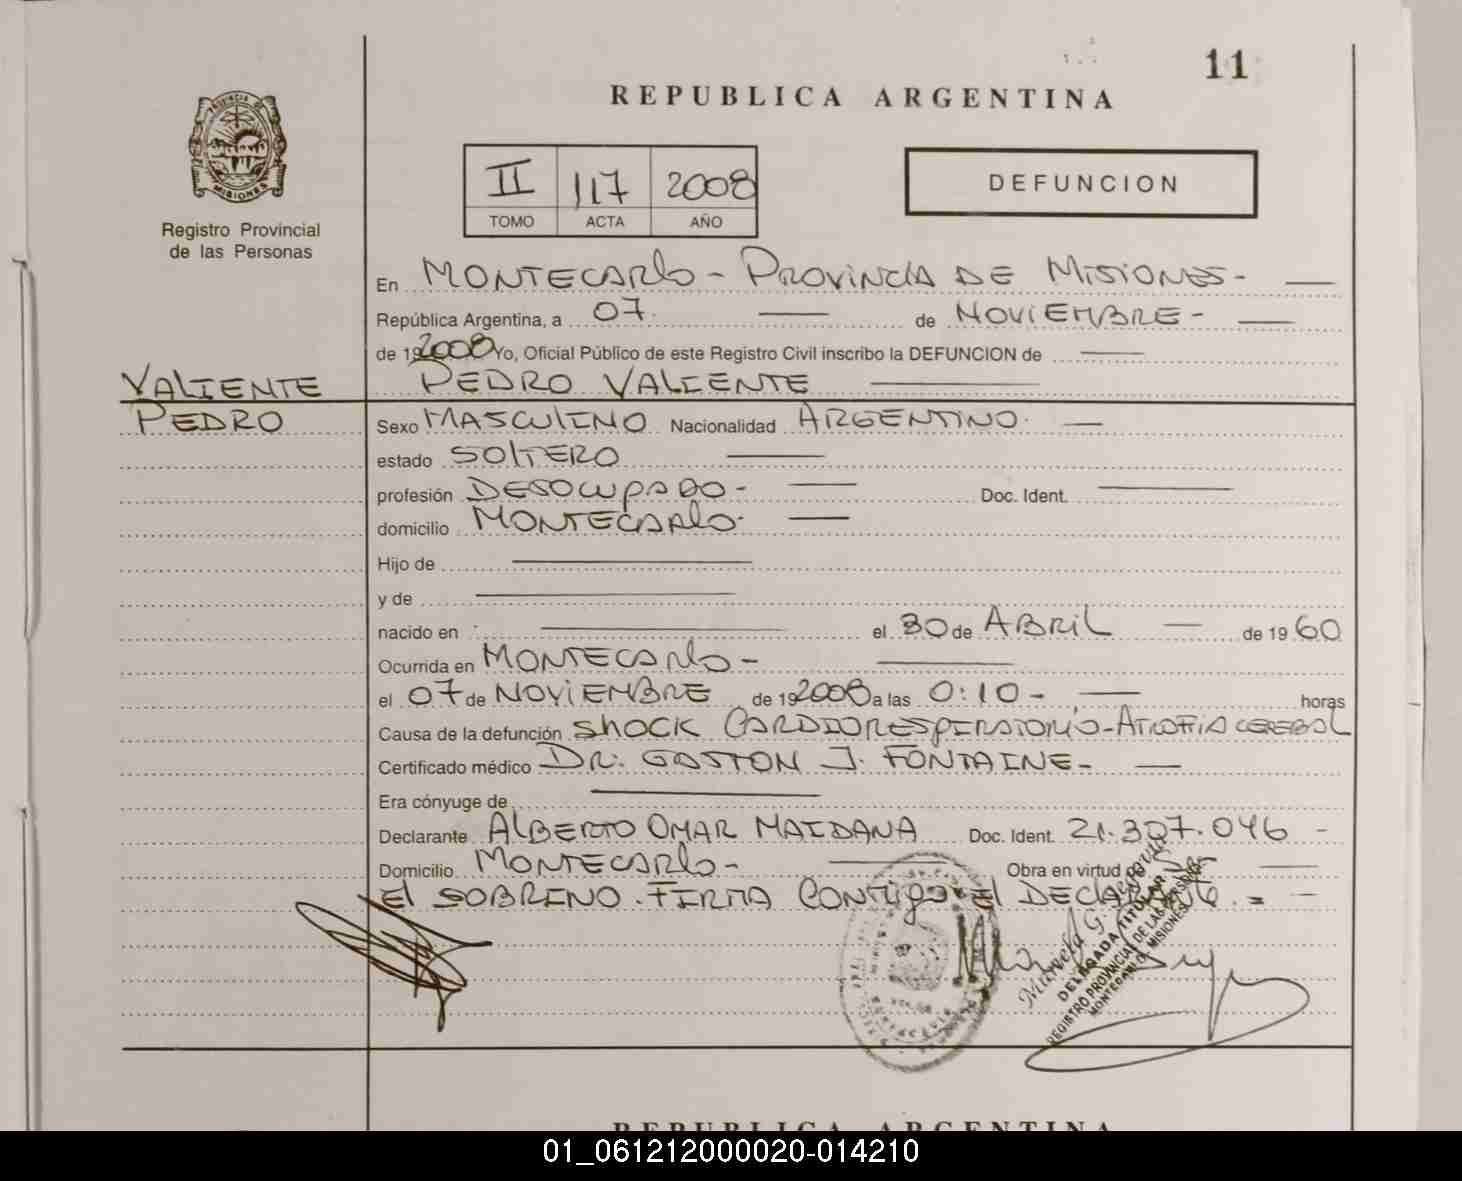 11
REPUBLICA ARGENTINA
PROVINCIA DE
MISIONES
Registro Provincial
de las Personas
II 117 2008
TOMO ACTA AÑO
DEFUNCION
En MONTECARLO - PROVINCIA DE MISIONES -
República Argentina, a 07 de NOVIEMBRE -
de 192008 Yo, Oficial Público de este Registro Civil inscribo la DEFUNCION de
VALIENTE PEDRO VALIENTE
PEDRO
Sexo MASCULINO Nacionalidad ARGENTINO.
estado SOLTERO
profesión DESOCUPADO - Doc. Ident.
domicilio MONTECARLO.
Hijo de
y de
nacido en el 30 de ABRIL de 19 60
Ocurrida en MONTECARLO -
el 07 de NOVIEMBRE de 192008 a las 0:10 - horas
Causa de la defunción SHOCK CARDIORESPIRATORIO - ATROFIA CEREBAL
Certificado médico DR. GASTON J. FONTAINE -
Era cónyuge de
Declarante ALBERTO OMAR MAIDANA Doc. Ident. 21.307.046 -
Domicilio MONTECARLO - Obra en virtud de
El SOBRINO. FIRMA CONMIGO El DECLARANTE. =
Marcela G.
DELEGADA TITULAR
REGISTRO PROVINCIAL DE LAS PERSONAS
MONTECARLO MISIONES
REPUBLICA ARGENTINA
01_061212000020-014210